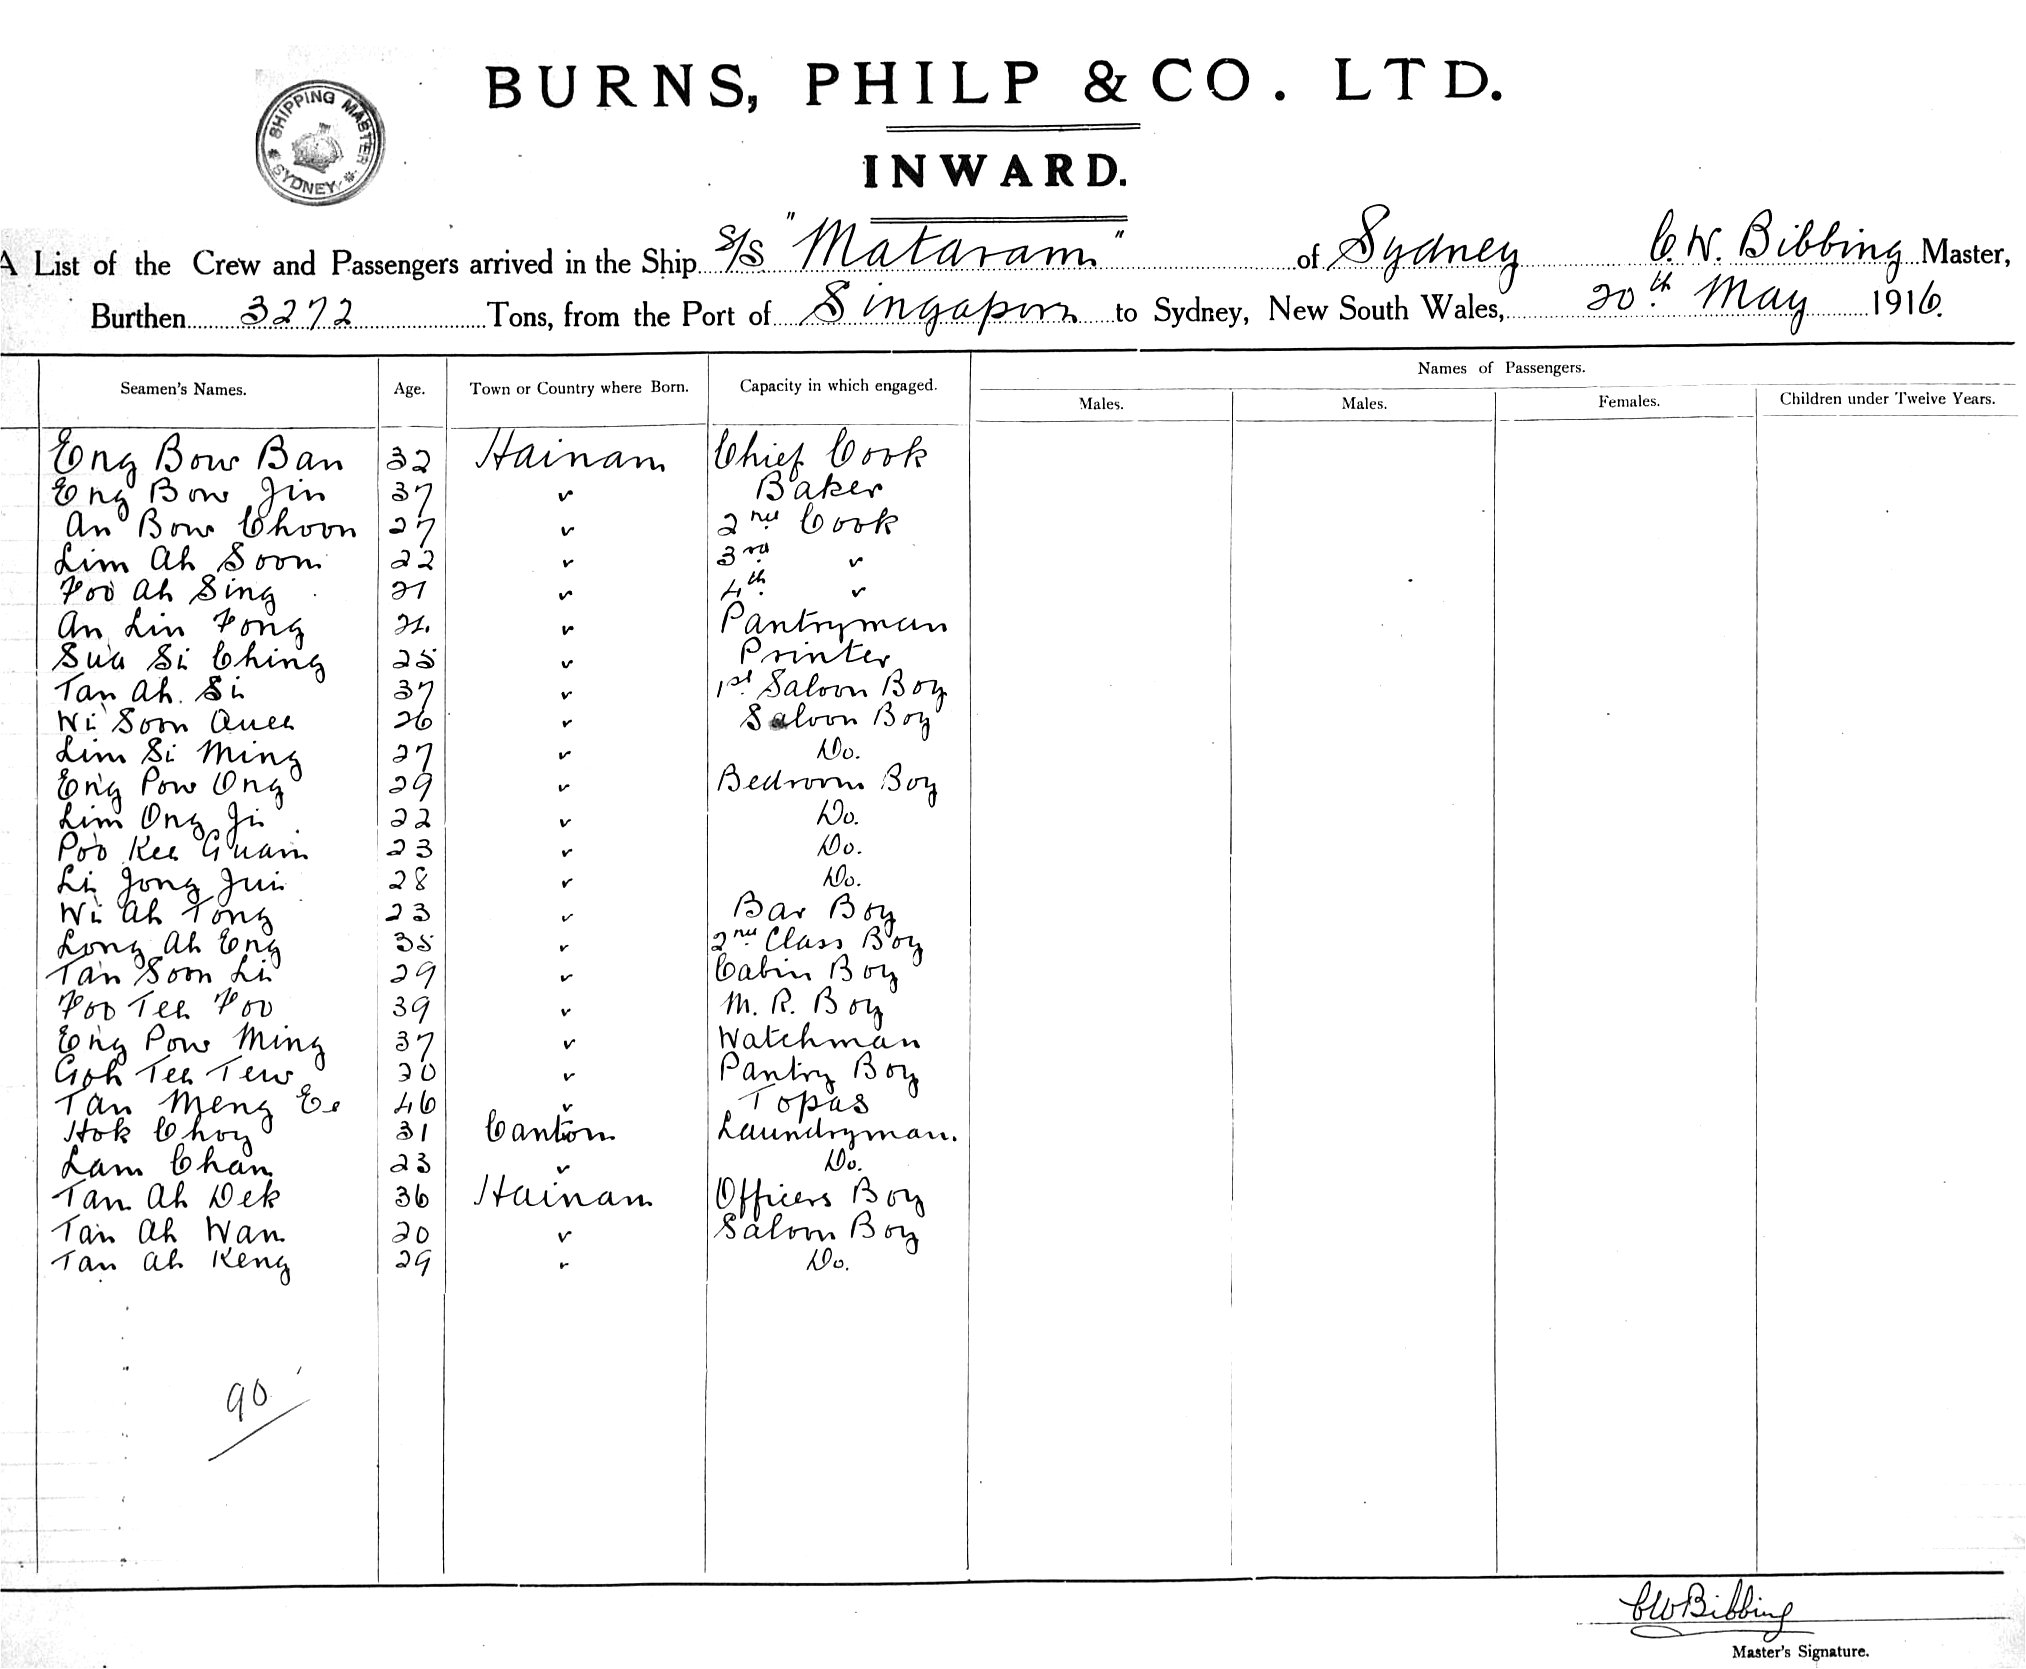 BURNS, PHILP & CO. LTD.
SHIPPING MASTER
SYDNEY
INWARD.
A List of the Crew and Passengers arrived in the Ship S/S "Mataram" of Sydney C. W. Bibbing Master,
Burthen 3272 Tons, from the Port of Singapore to Sydney, New South Wales, 20th May 1916.
Names of Passengers.
Seamen's Names. Age. Town or Country where Born. Capacity in which engaged. Males. Males. Females. Children under Twelve Years.
Eng Bow Ban 32 Hainam Chief Cook
Eng Bow Jin 37 " Baker
An Bow Choon 27 " 2nd Cook
Lim Ah Soon 22 " 3rd "
Foo Ah Sing 21 " 4th "
An Lin Fong 24 " Pantryman
Sua Si Ching 25 " Printer
Tan Ah Si 37 " 1st Saloon Boy
Wi Soon 26 " Saloon Boy
Lim Si Ming 27 " Do.
Eng Pow Ong 29 " Bedroom Boy
Lim Ong Ji 22 " Do.
Poo Kee Guam 23 " Do.
Li Jong Jui 28 " Do.
Wi Ah Tong 23 " Bar Boy
Long Ah Eng 35 " 2nd Class Boy
Tan Soon Li 29 " Cabin Boy
Foo Tee Foo 39 " M. R. Boy
Eng Pow Ming 37 " Watchman
Goh Tee Tew 20 " Pantry Boy
Tan Meng Ee 46 " Topas
Hok Choy 31 Canton Laundryman.
Lam Chan 23 " Do.
Tan Ah Dek 36 Hainam Officers Boy
Tan Ah Wan 20 " Saloon Boy
Tan Ah Keng 29 " Do.
90
CW Bibbing
Master's Signature.